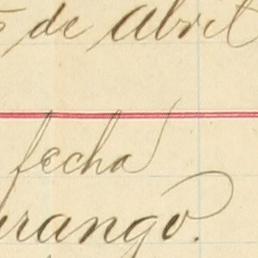 de Abril
fecha
urango.